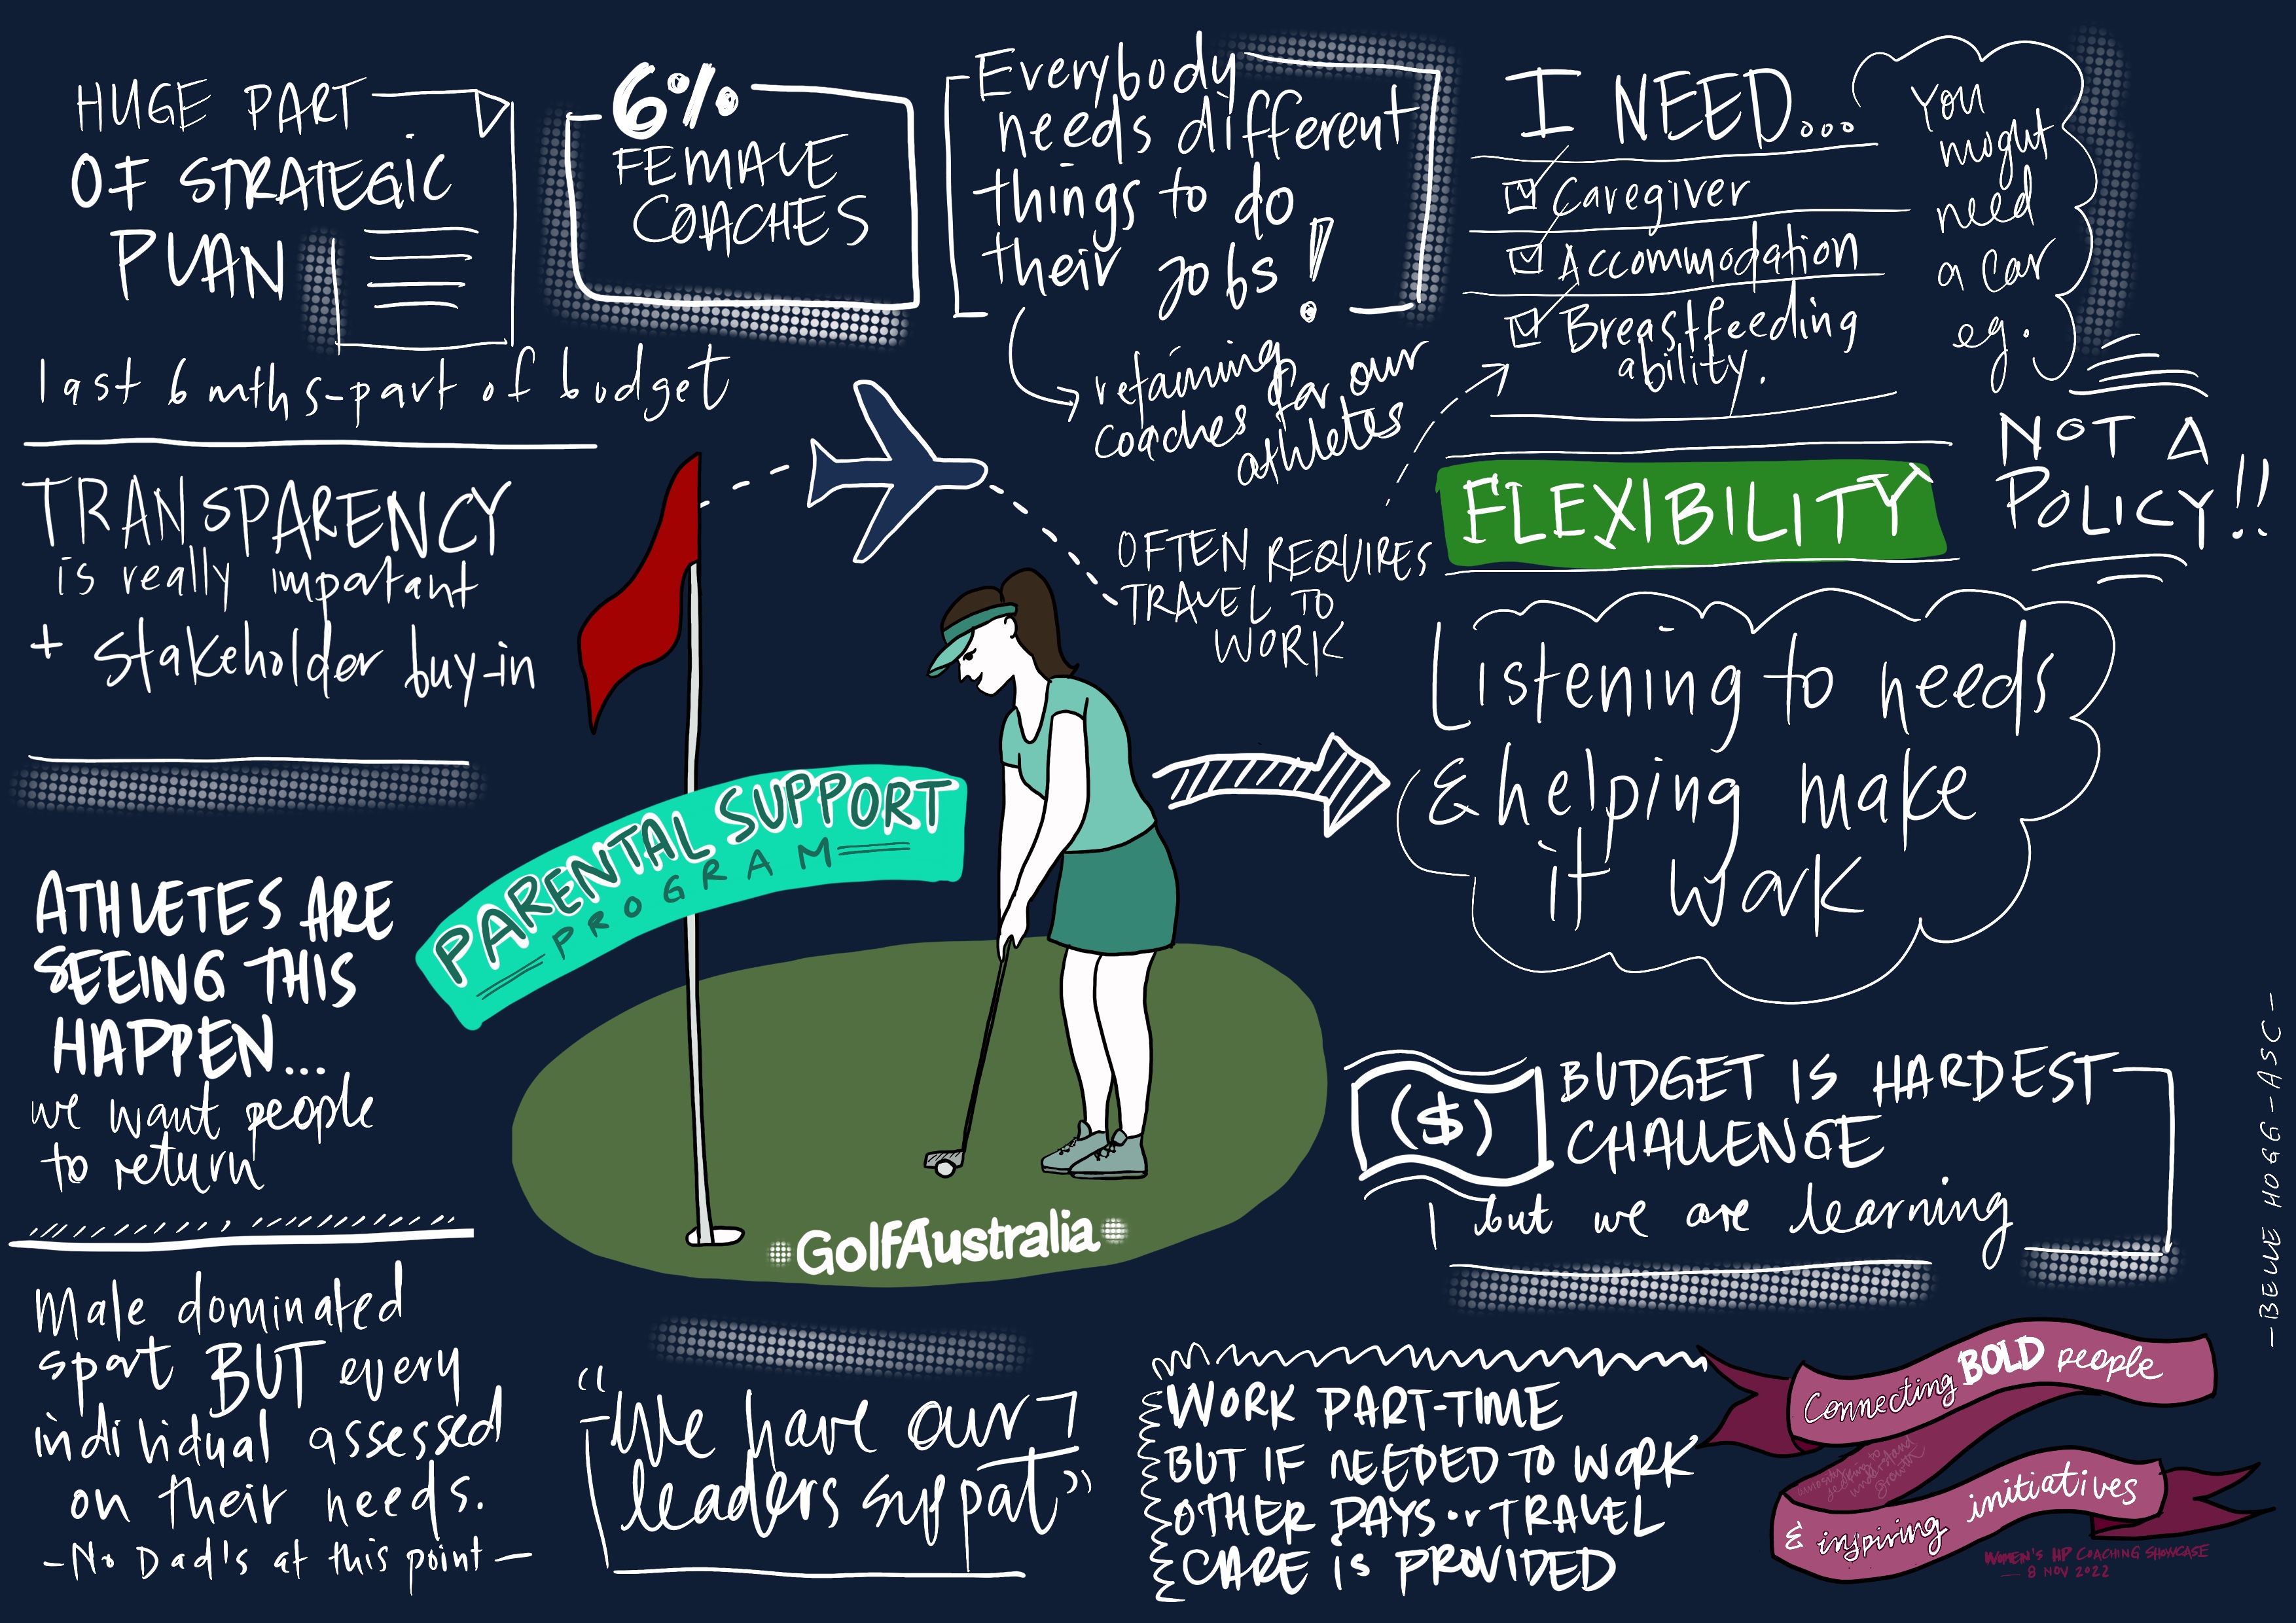 HUGE PART
OF STRATEGIC
PLAN
last 6 mths-part of budget
6%
FEMALE
COACHES
Everybody
needs different
things to do
their jobs!
retaining
coaches for our
athletes
I NEED...
Caregiver
Accommodation
Breastfeeding
ability.
You
might
need
a car
eg.
NOT A
POLICY!!
FLEXIBILITY
OFTEN REQUIRES
TRAVEL TO
WORK
TRANSPARENCY
is really important
+ Stakeholder buy-in
Listening to needs
& helping make
it work
PARENTAL SUPPORT
PROGRAM
ATHLETES ARE
SEEING THIS
HAPPEN...
we want people
to return
($)
BUDGET IS HARDEST
CHALLENGE
but we are learning
GolfAustralia
Male dominated
sport BUT every
individual assessed
on their needs.
-No Dad's at this point-
"We have our
leaders support"
WORK PART-TIME
BUT IF NEEDED TO WORK
OTHER DAYS or TRAVEL
CARE is PROVIDED
Connecting BOLD people
seeking to
understand
growth
& inspiring initiatives
WOMEN'S HP COACHING SHOWCASE
8 NOV 2022
-BELLE HOGG-ASC-